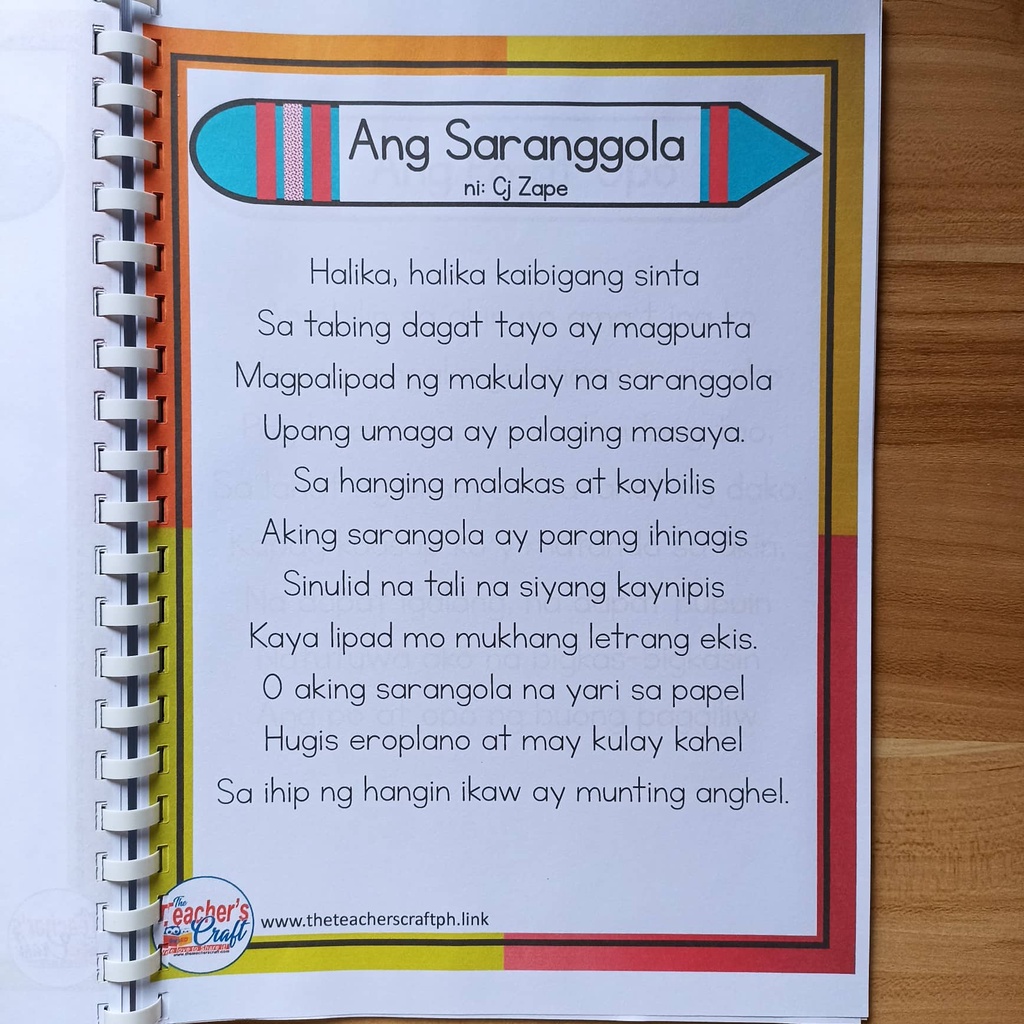 Ang Saranggola
ni: Cj Zape
Halika, halika kaibigang sinta
Sa tabing dagat tayo ay magpunta
Magpalipad ng makulay na saranggola
Upang umaga ay palaging masaya.
Sa hanging malakas at kaybilis
Aking sarangola ay parang ihinagis
Sinulid na tali na siyang kaynipis
Kaya lipad mo mukhang letrang ekis.
O aking sarangola na yari sa papel
Hugis eroplano at may kulay kahel
Sa ihip ng hangin ikaw ay munting anghel.
The
Teacher's
Craft
www.theteacherscraftph.link